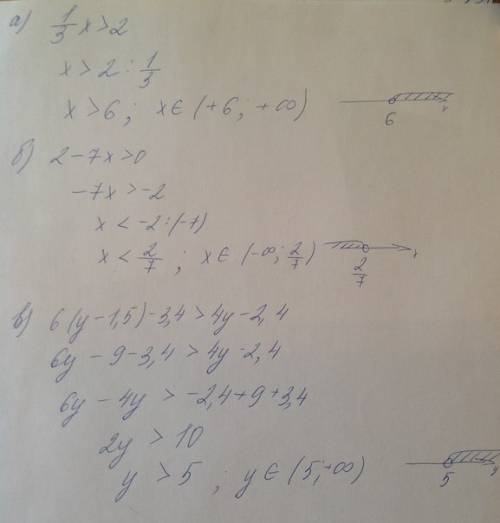 а) 1/3 x > 2
x > 2 : 1/3
x > 6 ; x ∈ (+6 ; +∞)
6 x
б) 2 - 7x > 0
-7x > -2
x < -2 : (-7)
x < 2/7 ; x ∈ (-∞ ; 2/7)
2/7 x
в) 6(y - 1,5) - 3,4 > 4y - 2,4
6y - 9 - 3,4 > 4y - 2,4
6y - 4y > -2,4 + 9 + 3,4
2y > 10
y > 5 ; y ∈ (5 ; +∞)
5 y